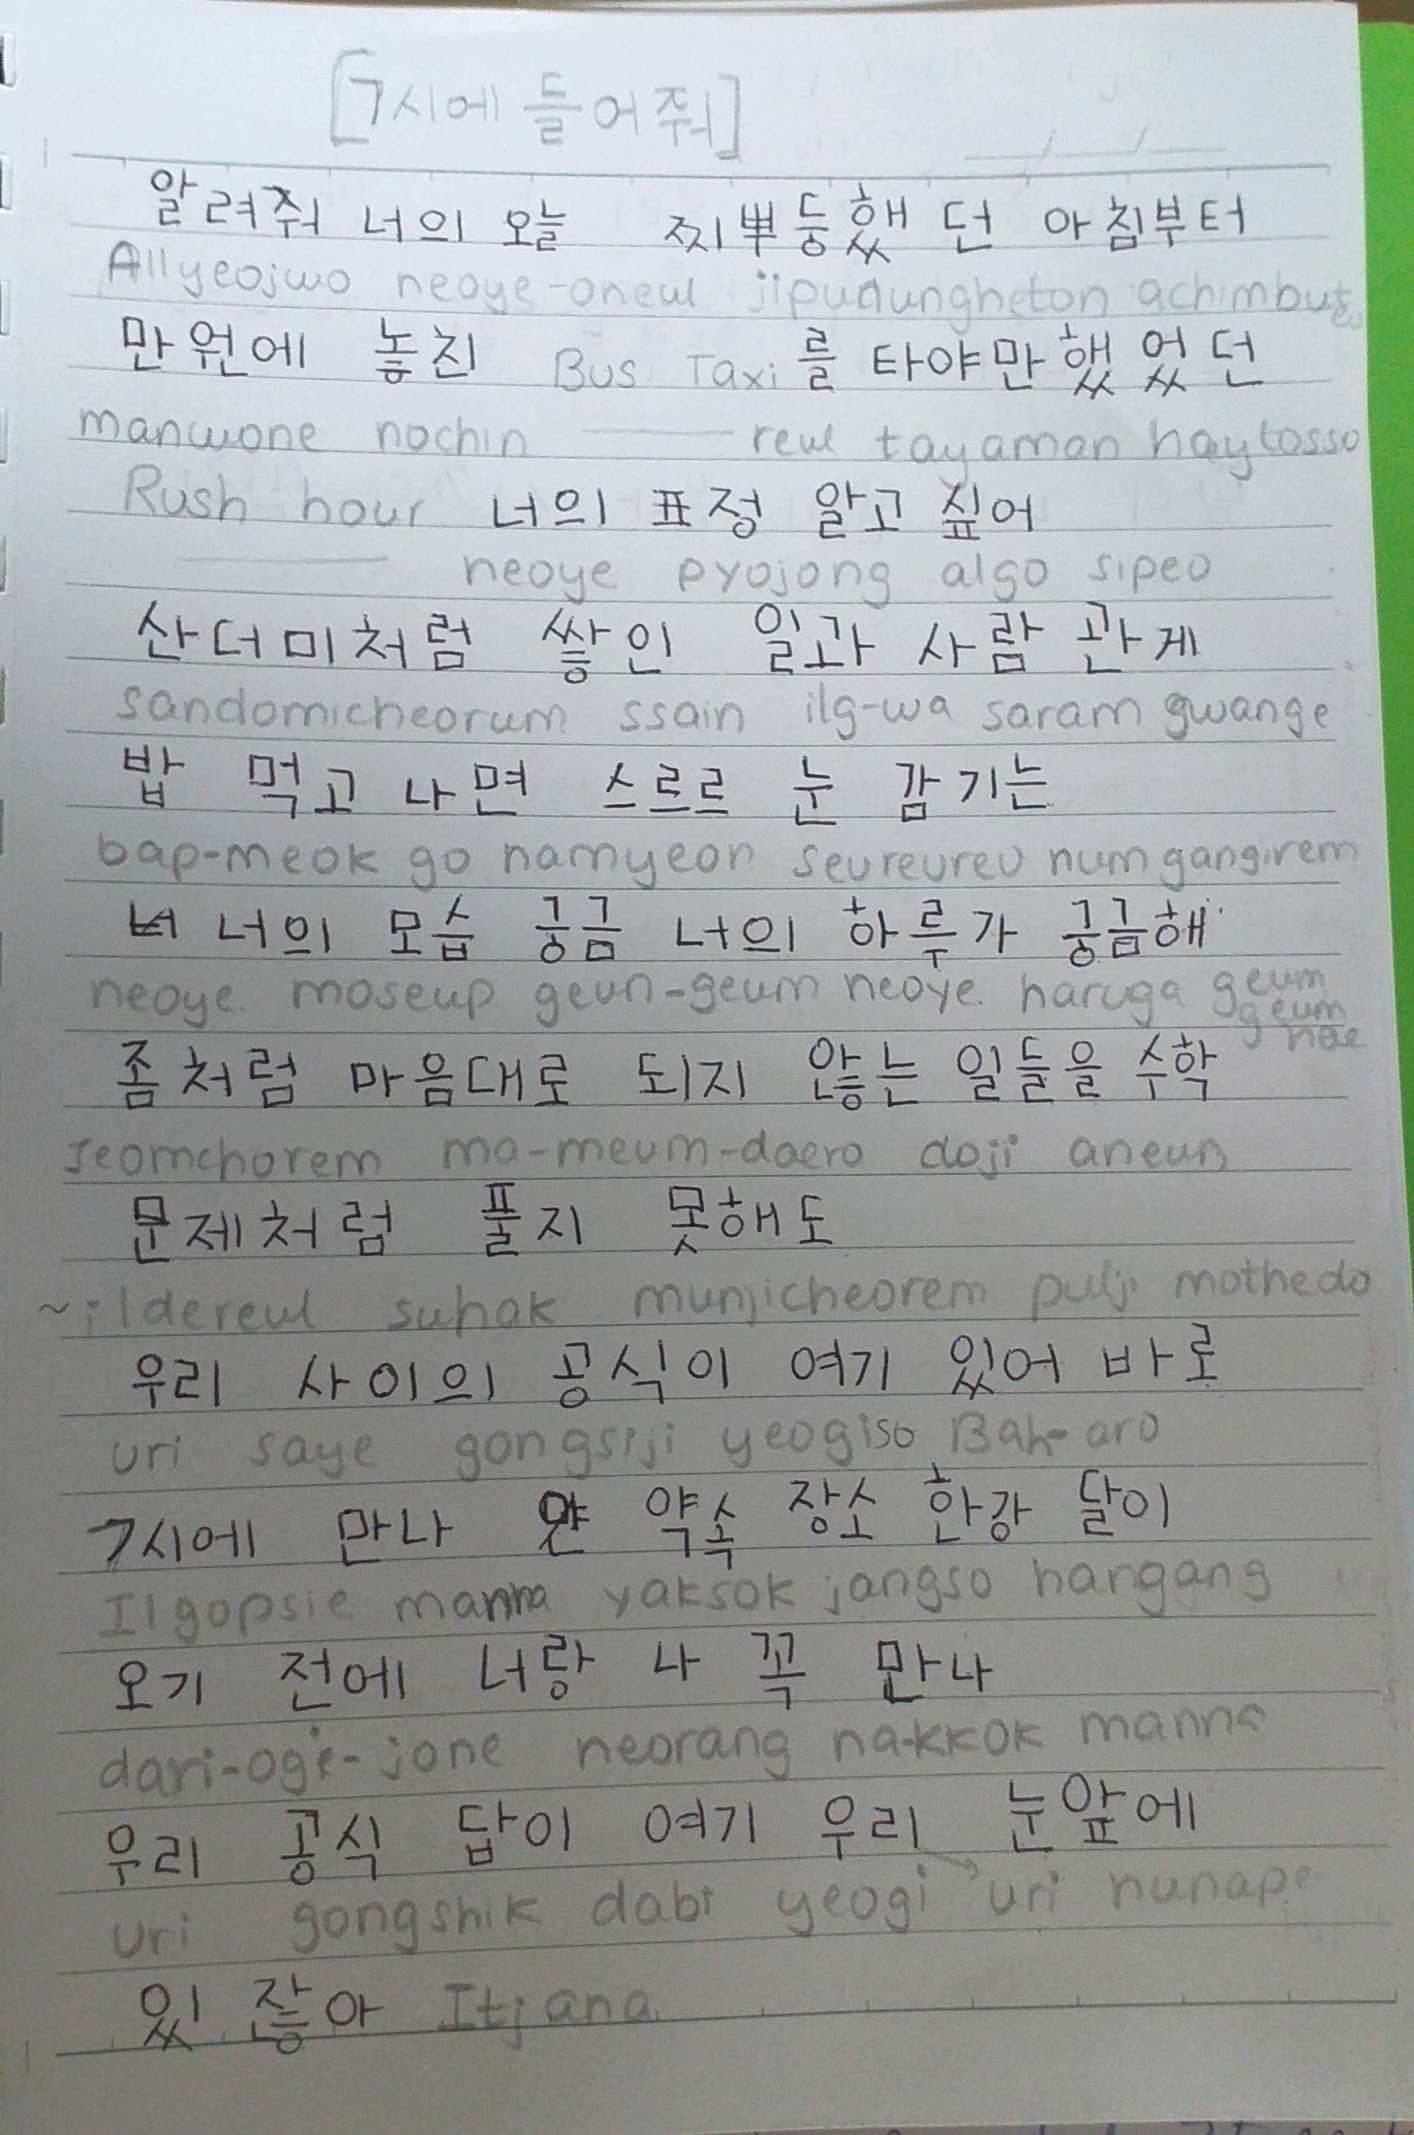 [7시에 들어줘]
알려줘 너의 오늘 찌뿌둥했던 아침부터
Allyeojwo neoye-oneul jipudungheton achimbuteo
만원에 놓친 Bus Taxi를 타야만했었던
manwone nochin reul tayaman haytosso
Rush hour 너의 표정 알고 싶어
neoye pyojong algo sipeo
산더미처럼 쌓인 일과 사람 관계
sandomicheorum ssain ilg-wa saram gwange
밥 먹고 나면 스르르 눈 감기는
bap-meok go namyeon seureureu num gangirem
너의 모습 궁금 너의 하루가 궁금해
neoye moseup geun-geum neoye haruga geum geum hae
좀처럼 마음대로 되지 않는 일들을 수학
jeomchorem ma-meum-daero doji aneun
문제처럼 풀지 못해도
~ildereul suhak munjicheorem pulji mothedo
우리 사이의 공식이 여기 있어 바로
uri saye gongsiji yeogiso Bah-aro
7시에 만나 약속 장소 한강 달이
Ilgopsie manna yaksok jangso hangang
오기 전에 너랑 나 꼭 만나
dari-oge-jone neorang na-kkok manna
우리 공식 답이 여기 우리 눈앞에
uri gongshik dabi yeogi uri nunape
있잖아 Itjana